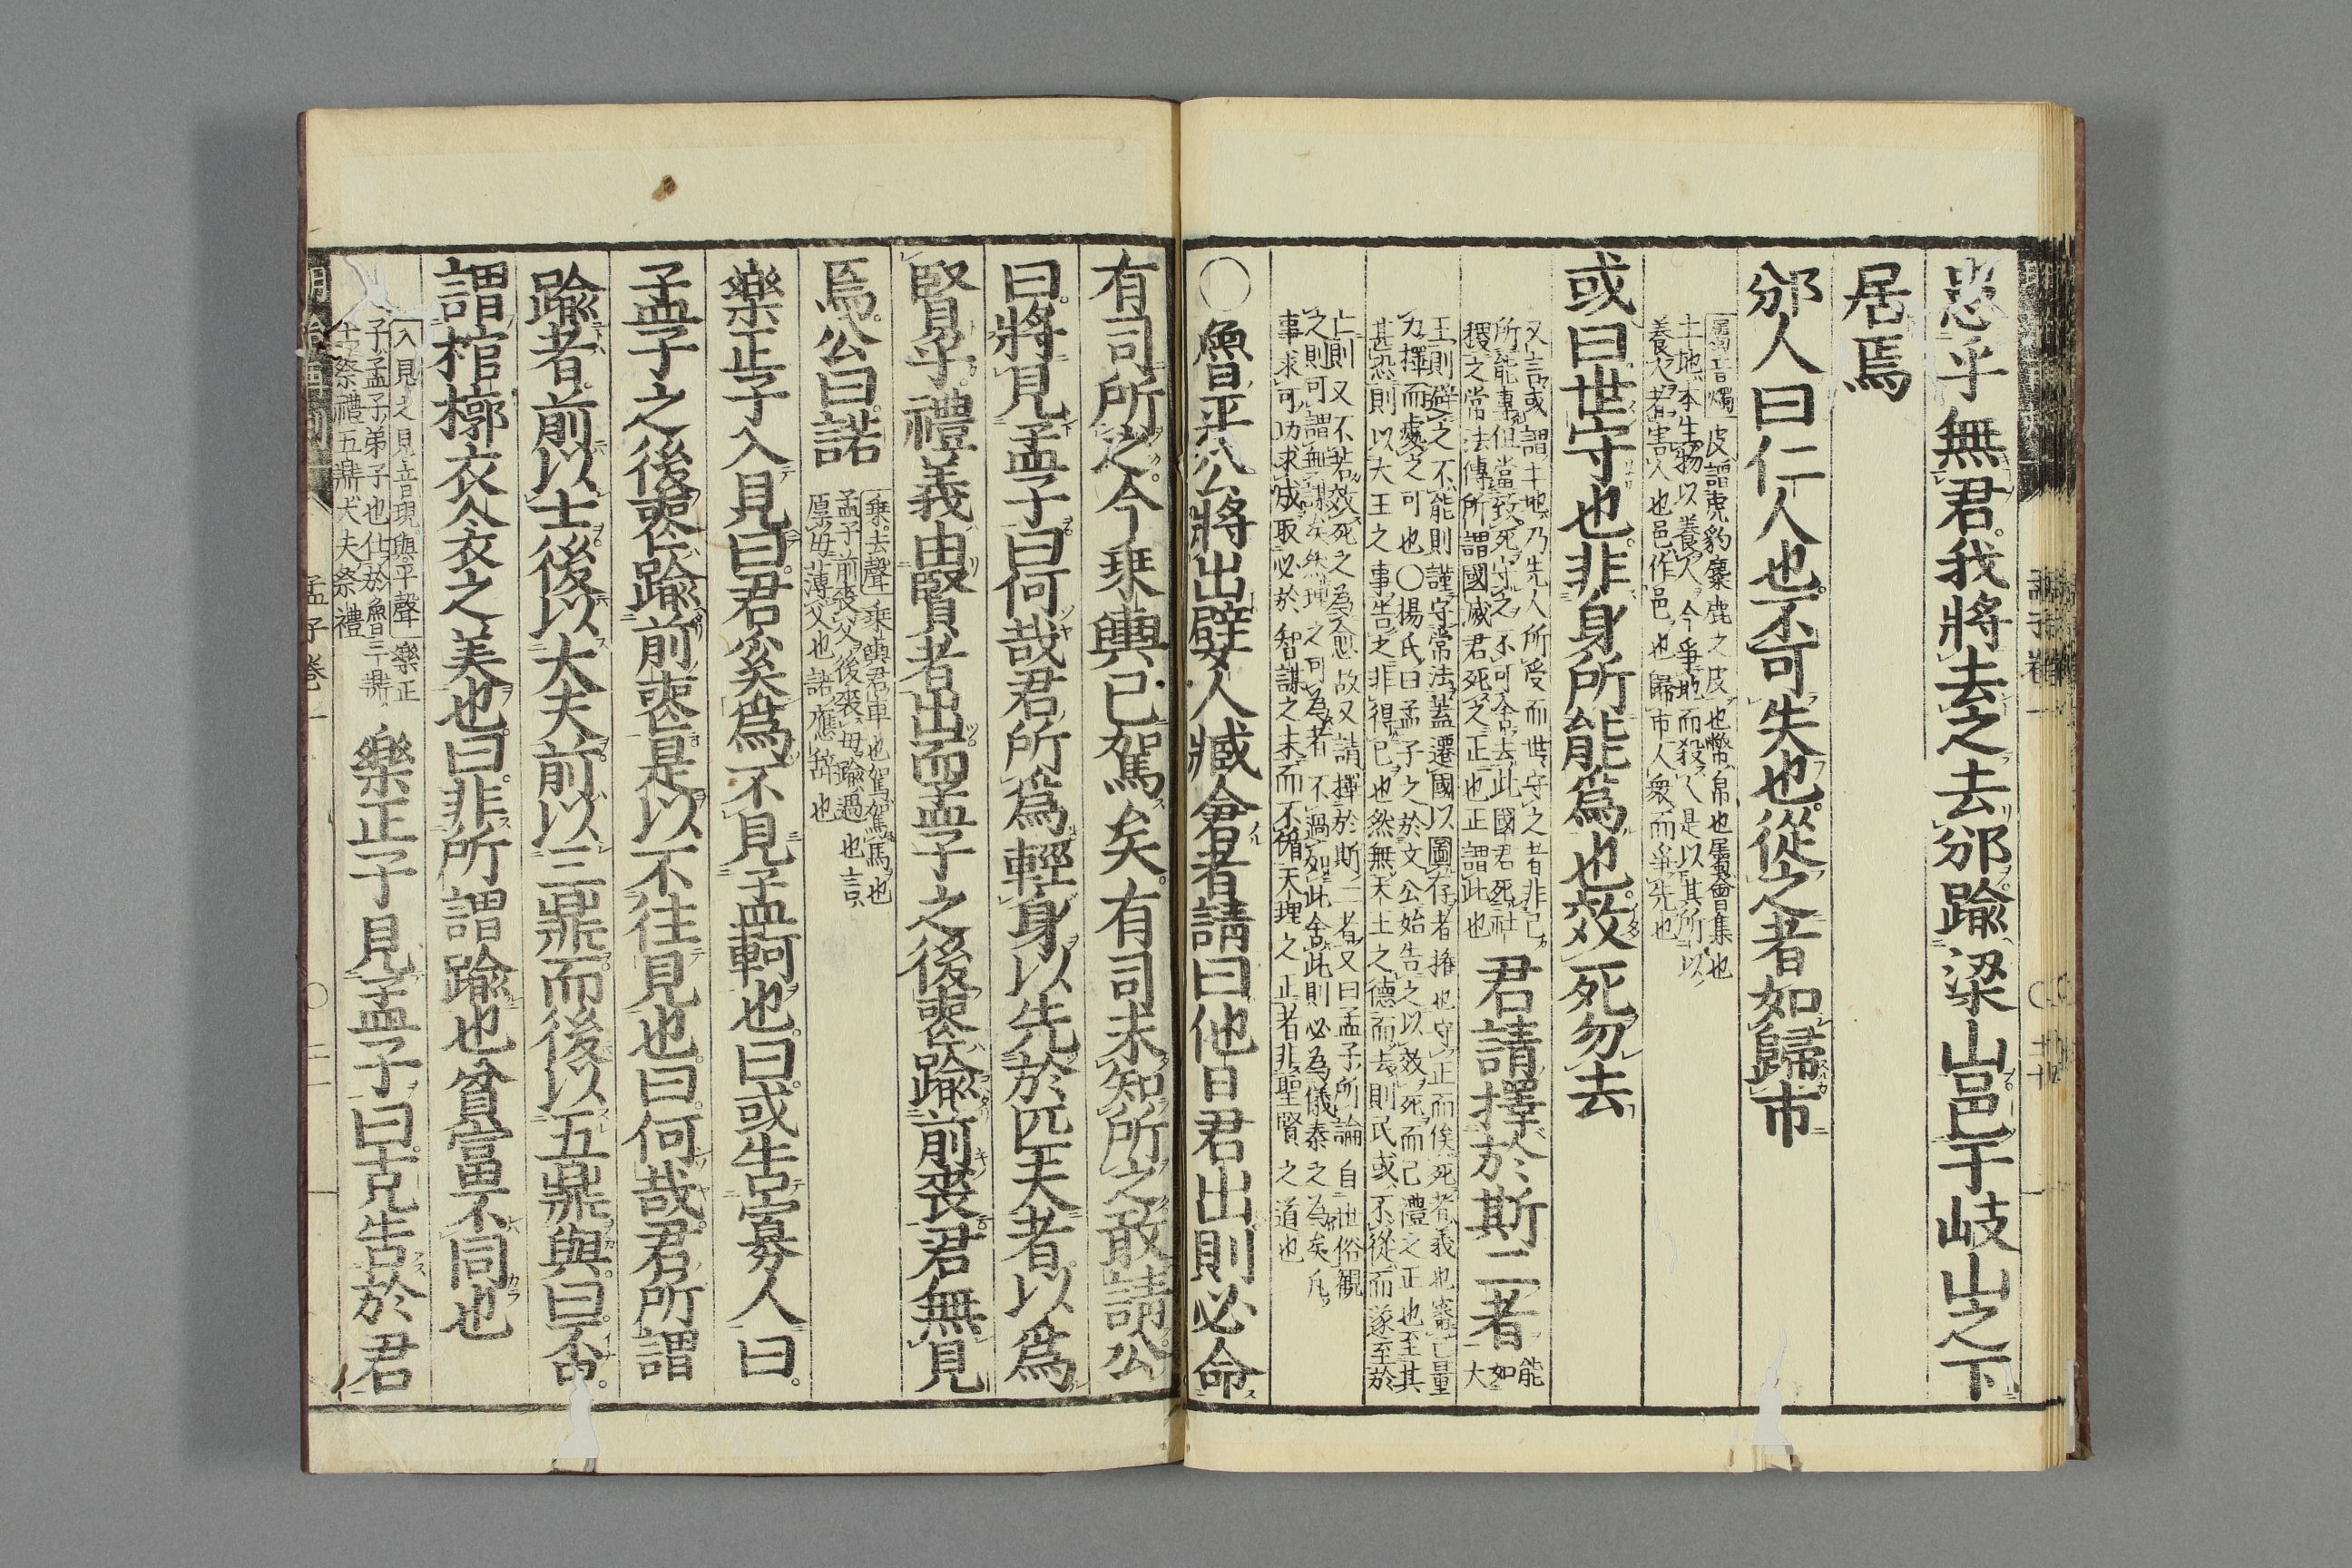 患乎無君我將去之去邠踰梁山邑于岐山之下
居焉
邠人曰仁人也不可失也從之者如歸市
屬音燭皮謂虎豹麋鹿之皮也幣帛也屬會集也
土地本生物以養人今爭地而殺人是以其所以
養人者害人也邑作邑也歸市人衆而爭先也
或曰世守也非身所能為也效死勿去
又言或謂土地乃先人所受而世守之者非己
所能專但當致死守之不可舍去此國君死社
稷之常法傳所謂國滅君死之正也正謂此也
君請擇於斯二者
能如大
王則避之不能則謹守常法蓋遷國以圖存者権也守正而俟死者義也審己量
力擇而處之可也〇楊氏曰孟子之於文公始告之以效死而已禮之正也至其
甚恐則以大王之事告之非得已也然無大王之德而去則民或不從而遂至於
亡則又不若效死之為愈故又請擇於斯二者又曰孟子所論自世俗觀
之則可謂無謀矣然理之可為者不過如此舍此則必為儀秦之為矣凡
事求可功求成取必於智謀之末而不循天理之正者非聖賢之道也
〇魯平公將出嬖人臧倉者請曰他日君出則必命
有司所之今乘輿已駕矣有司未知所之敢請公
曰將見孟子曰何哉君所為輕身以先於匹夫者以為
賢乎禮義由賢者出而孟子之後喪踰前喪君無見
焉公曰諾
乘去聲乘輿君車也駕駕馬也
孟子前喪父後喪母踰過也言
厚母薄父也諾應辭也
樂正子入見曰君奚為不見孟軻也曰或告寡人曰
孟子之後喪踰前喪是以不往見也曰何哉君所謂
踰者前以士後以大夫前以三鼎而後以五鼎與曰否
謂棺槨衣衾之美也曰非所謂踰也貧富不同也
入見之見音現與平聲樂正
子孟子弟子也仕於魯三鼎
士祭禮五鼎大夫祭禮
樂正子見孟子曰克告於君
孟子卷一